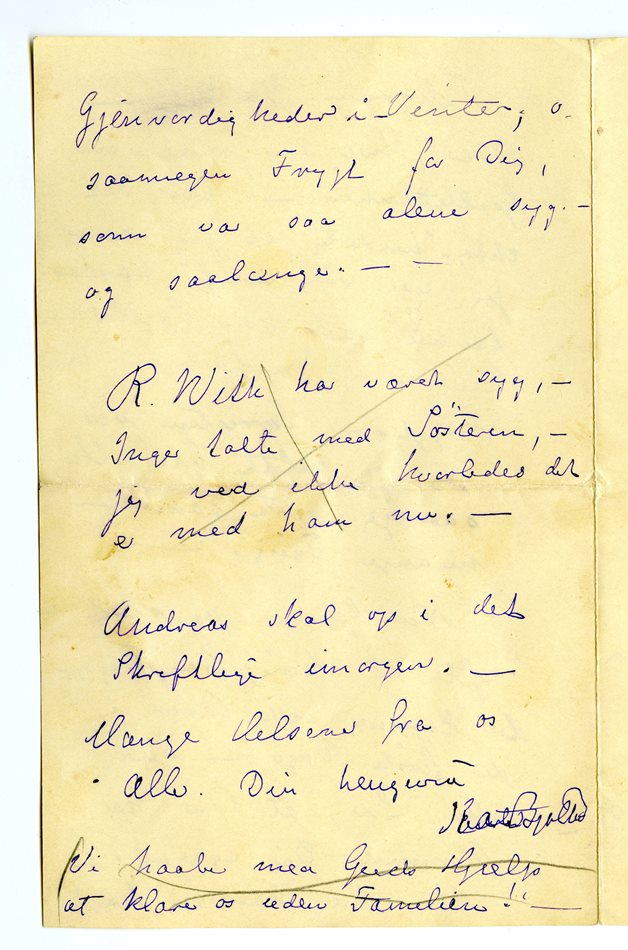 Gjenvordigheder i Vinter; o-
saamegen Frygt for Dig,
som var saa alene syg. –
og saalænge. — –
R. Witk har været syg, –
Inger talte med Søsteren, –
jeg ved ikke hvorledes det
er med ham nu. —
Andreas skal op i det
Skriftlige imorgen. —
Mange Helsener fra os
Alle. Din hengivne
Vi haabe med Guds Hjælp
at klare os uden Familien! —